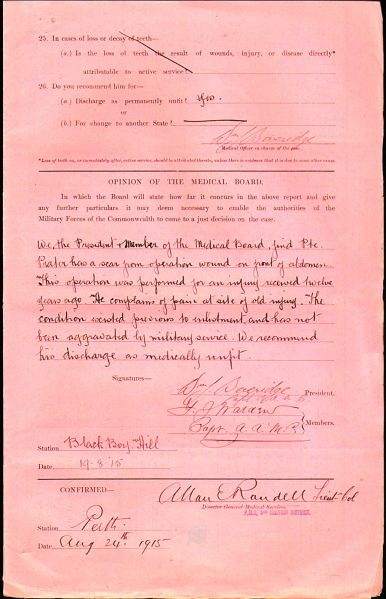 25. In cases of loss or decay of teeth—
(a.) Is the loss of teeth the result of wounds, injury, or disease directly*
attributable to active service?
26. Do you recommend him for—
(a.) Discharge as permanently unfit? Yes.
or
(b.) For change to another State?
Beveridge
Medical Officer in charge of the case.
*Loss of teeth on, or immediately after, active service, should be attributed thereto, unless there is evidence that it is due to some other cause.
OPINION OF THE MEDICAL BOARD.
In which the Board will state how far it concurs in the above report and give
any further particulars it may deem necessary to enable the authorities of the
Military Forces of the Commonwealth to come to a just decision on the case.
We, the President & Member of the Medical Board, find Pte.
Prater has a scar from operation wound on front of abdomen.
This operation was performed for an injury received twelve
years ago. He complains of pain at site of old injury. The
condition existed previous to enlistment, and has not
been aggravated by military service. We recommend
his discharge as medically unfit.
Signatures—
Beveridge
President.
Capt. A.A.M.C.
Members.
Station Black Boy Hill
Date 19-8-15
CONFIRMED—
Allan E Randell Lieut Col
Director-General Medical Services.
P.M.O. 5TH MILITARY DISTRICT.
Station Perth.
Date Aug 24th 1915